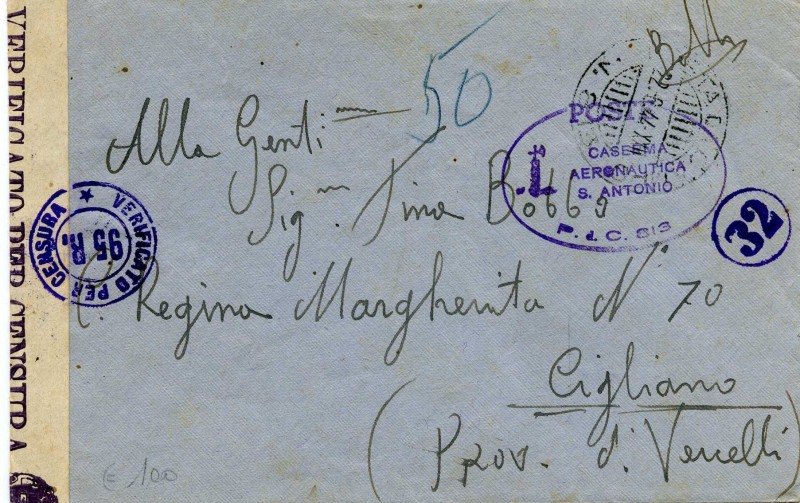 VERIFICATO PER CENSURA
50
POSTE
CASERMA
AERONAUTICA
S. ANTONIO
Alla Genti
Sig Pina Bobba
VERIFICATO PER CENSURA
95 R.
32
C. Regina Margherita N° 70
Cigliano
(Prov. di Vercelli)
€ 100